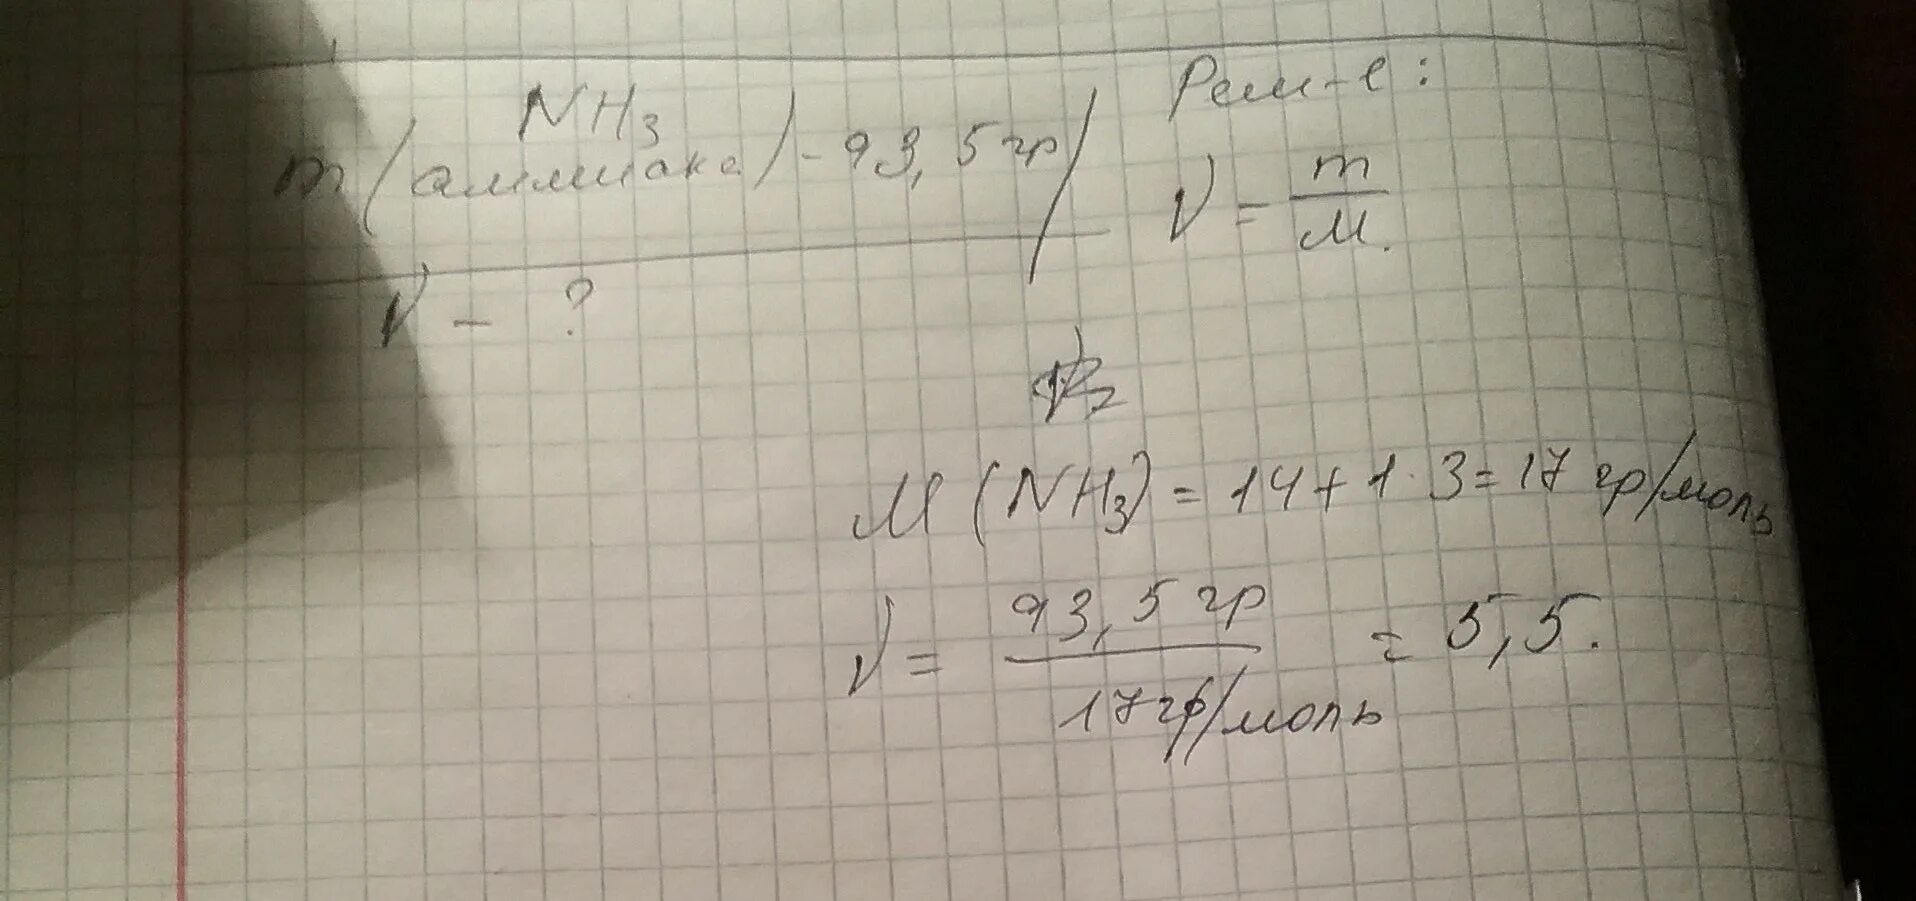 NH3
m (аммиака) - 93,5 гр
ν - ?
Реш-е:
ν = m/M.
M (NH3) = 14 + 1 · 3 = 17 гр/моль
ν = 93,5 гр / 17 гр/моль = 5,5.